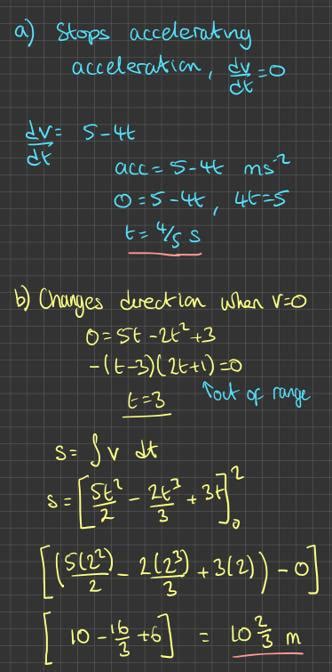 a) Stops accelerating
acceleration, dv/dt = 0
dv/dt = 5-4t
acc = 5-4t ms⁻²
0 = 5-4t, 4t=5
t = 4/5 s
b) Changes direction when v=0
0 = 5t - 2t² + 3
-(t-3)(2t+1) = 0
t = 3 ↑out of range
s = ∫ v dt
s = [5t²/2 - 2t³/3 + 3t]²₀
[(5(2²)/2 - 2(2³)/3 + 3(2)) - 0]
[10 - 16/3 + 6] = 10 2/3 m